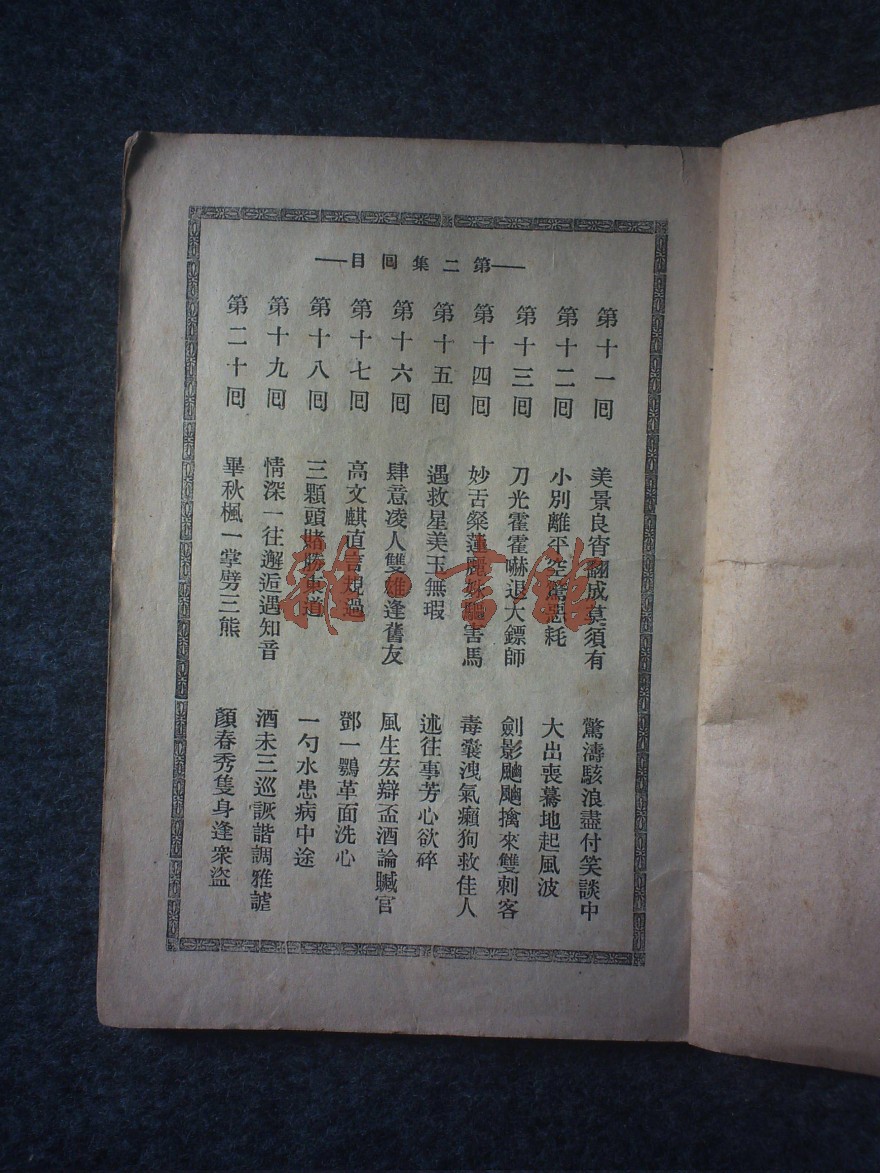 第二集回目
第十一回 美景良宵翻成莫須有 驚濤駭浪盡付笑談中
第十二回 小別離平空驚惡耗 大出喪驀地起風波
第十三回 刀光霍霍嚇退大鏢師 劍影颼颼擒來雙刺客
第十四回 妙舌粲蓮 害馬 毒囊洩氣癩狗救佳人
第十五回 遇救星美玉無瑕 述往事芳心欲碎
第十六回 肆意凌人雙雄逢舊友 風生宏辯盃酒論贓官
第十七回 高文麒直言規過 鄧一鶚革面洗心
第十八回 三顆頭賭勝東道 一勺水患病中途
第十九回 情深一往邂逅遇知音 酒未三巡詼諧調雅謔
第二十回 畢秋楓一掌劈三熊 顏春秀隻身逢衆盜
雜·書館